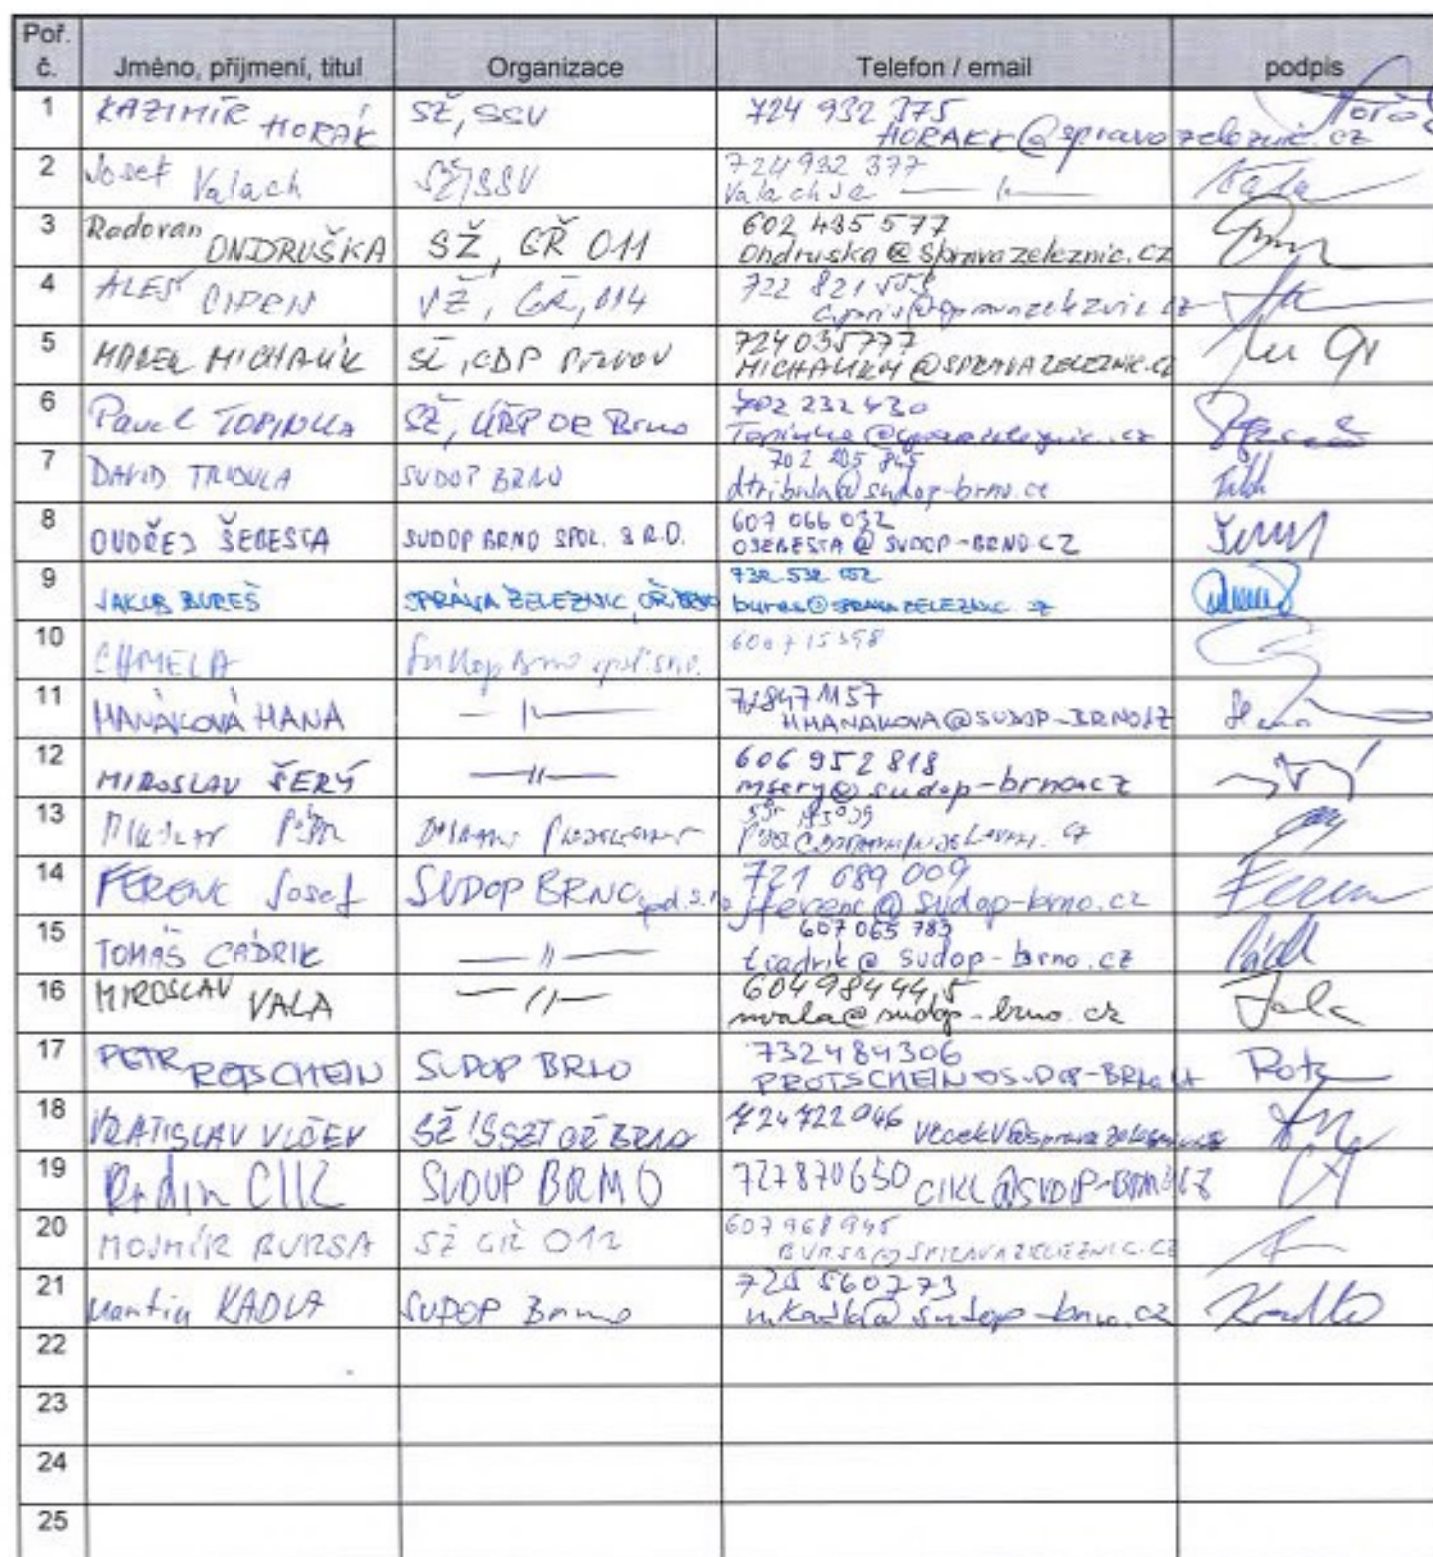 Poř. č. Jméno, příjmení, titul Organizace Telefon / email podpis
1 KAZIMÍR HORÁK SŽ, SSV 724 932 375 HORAKK@spravazeleznic.cz
2 Josef Valach SŽ, SSV 724 932 377 ValachJo —〃—
3 Radovan ONDRUŠKA SŽ, GŘ O11 602 435 577 Ondruska@Spravazeleznic.cz
4 ALEŠ SŽ, GŘ, O14 722 821
5 MAREK MICHALÍK SŽ, CDP PŘEROV 724035777 MICHALIKM@SPRAVAZELEZNIC.CZ
6 Pavel TOPINKA SŽ, OŘ Brno 702 232 430 Topinka@spravazeleznic.cz
7 DAVID TRIBULA SUDOP BRNO 702 205 845 dtribula@sudop-brno.cz
8 ONDŘEJ ŠEBESTA SUDOP BRNO SPOL. S R.O. 607 066 032 OSEBESTA@SUDOP-BRNO.CZ
9 JAKUB BUREŠ SPRÁVA ŽELEZNIC, OŘ BRNO 732 532 bures@SPRAVAZELEZNIC.CZ
10 CHMELA Sudop Brno spol. s r.o.
11 HANÁKOVÁ HANA —〃— 728471157 HHANAKOVA@SUDOP-BRNO.CZ
12 MIROSLAV ŠERÝ —〃— 606 952 818 msery@sudop-brno.cz
13
14 FERENC Josef SUDOP BRNO spol. s.r.o 721 689 009 jferenc@sudop-brno.cz
15 TOMÁŠ CÁDRIK —〃— 607 065 783 tcadrik@sudop-brno.cz
16 MIROSLAV VALA —〃— 604984445 mvala@sudop-brno.cz Vala
17 PETR ROTSCHEIN SUDOP BRNO 732484306 PROTSCHEIN@SUDOP-BRNO.CZ
18 VRATISLAV VLČEK SŽ SSZT OŘ BRNO 724722046 VlcekV@spravazeleznic.cz
19 Radim CIKL SUDOP BRNO 727870650 CIKL@SUDOP-BRNO.CZ
20 MOJMÍR BURSA SŽ GŘ O12 607968945 BURSA@SPRAVAZELEZNIC.CZ
21 Martin KADLA SUDOP Brno 725 560273 mkadla@sudop-brno.cz
22
23
24
25